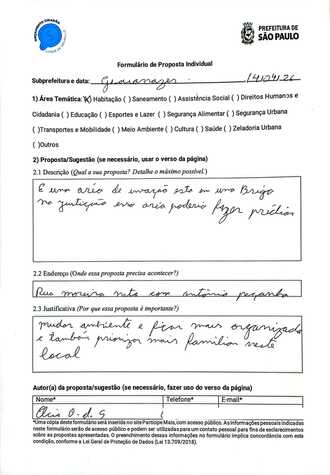 PREFEITURA DE
SÃO PAULO
Formulário de Proposta Individual
Subprefeitura e data: Guaianazes. 14/04/26
1) Área Temática: (X) Habitação ( ) Saneamento ( ) Assistência Social ( ) Direitos Humanos e
Cidadania ( ) Educação ( ) Esportes e Lazer ( ) Segurança Alimentar ( ) Segurança Urbana
( )Transportes e Mobilidade ( ) Meio Ambiente ( ) Cultura ( ) Saúde ( ) Zeladoria Urbana
( )Outros
2) Proposta/Sugestão (se necessário, usar o verso da página)
2.1 Descrição (Qual a sua proposta? Detalhe o máximo possível.)
E uma area de invação esta em uma Briga
na justiça essa area poderia fazer prédios
2.2 Endereço (Onde essa proposta precisa acontecer?)
Rua moreira neto com antônio peçanha
2.3 Justificativa (Por que esta proposta é importante?)
mudar ambiente e ficar mais organizado
e também priorizar mais familias neste
local
Autor(a) da proposta/sugestão (se necessário, fazer uso do verso da página)
Nome* Telefone* E-mail*
O. d. S
*Uma cópia deste formulário será inserida no site Participe Mais, com acesso público. As informações pessoais indicadas
neste formulário serão de acesso público e podem ser utilizadas para um contato pessoal para fins de esclarecimentos
sobre as propostas apresentadas. O preenchimento dessas informações no formulário implica concordância com esta
condição, conforme a Lei Geral de Proteção de Dados (Lei 13.709/2018).